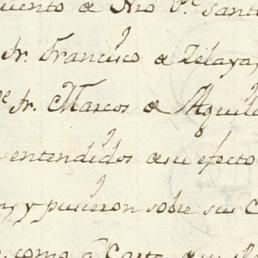 uento de Nro Pe. Santo
Fr. Francisco de Zelaya,
Fr. Marcos de Aguile
entendidos de su efecto
y pusieron sobre sus C
como a Carta de su